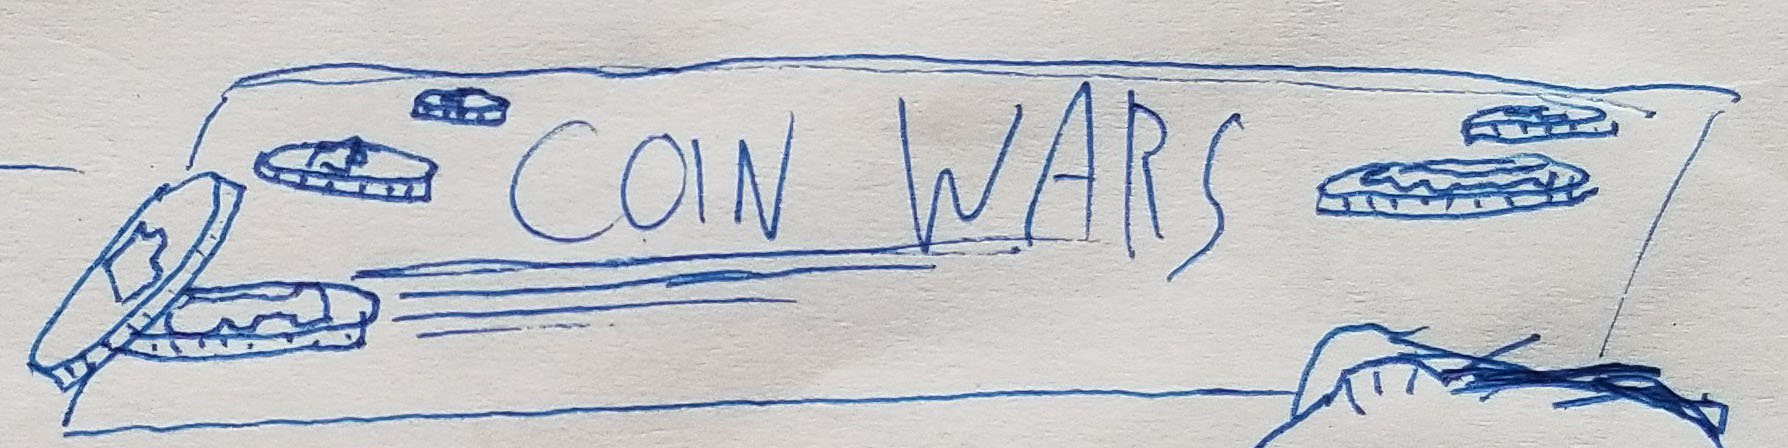 COIN WARS